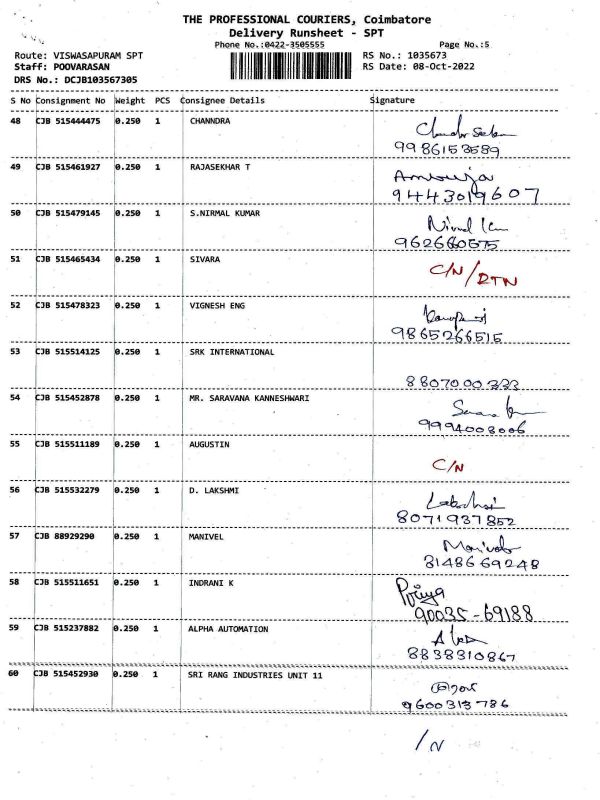 THE PROFESSIONAL COURIERS, Coimbatore
Delivery Runsheet - SPT
Phone No.:0422-3505555 Page No.:5
Route: VISWASAPURAM SPT RS No.: 1035673
Staff: POOVARASAN RS Date: 08-Oct-2022
DRS No.: DCJB103567305
S No Consignment No Weight PCS Consignee Details Signature
48 CJB 515444475 0.250 1 CHANNDRA
9986153589
49 CJB 515461927 0.250 1 RAJASEKHAR T
9443019607
50 CJB 515479145 0.250 1 S.NIRMAL KUMAR Nirmal
9626660575
51 CJB 515465434 0.250 1 SIVARA C/N/RTN
52 CJB 515478323 0.250 1 VIGNESH ENG
9865266515
53 CJB 515514125 0.250 1 SRK INTERNATIONAL
8807000333
54 CJB 515452878 0.250 1 MR. SARAVANA KANNESHWARI
9994003006
55 CJB 515511189 0.250 1 AUGUSTIN C/N
56 CJB 515532279 0.250 1 D. LAKSHMI
8071937852
57 CJB 88929290 0.250 1 MANIVEL
3148669248
58 CJB 515511651 0.250 1 INDRANI K Priya
90035-69188
59 CJB 515237882 0.250 1 ALPHA AUTOMATION
8838310867
60 CJB 515452930 0.250 1 SRI RANG INDUSTRIES UNIT 11
9600313786
/N